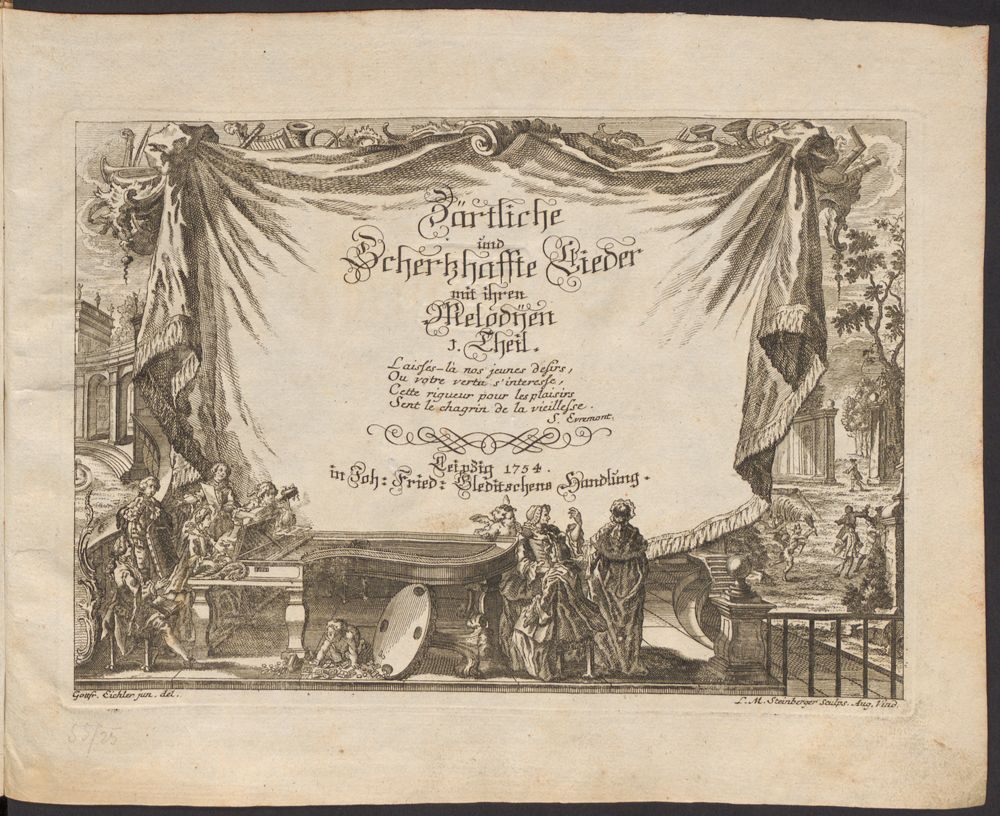 Zärtliche
und
Schertzhaffte Lieder
mit ihren
Melodÿen
1. Theil.
Laissés-là nos jeunes desirs,
Ou votre vertu s'interesse,
Cette rigueur pour les plaisirs
Sent le chagrin de la vieillesse.
S. Evremont.
Leipzig 1754.
in Joh: Fried: Gleditschens Handlung.
Gottfr. Eichler jun. del.
L. M. Steinberger Sculps. Aug. Vind.